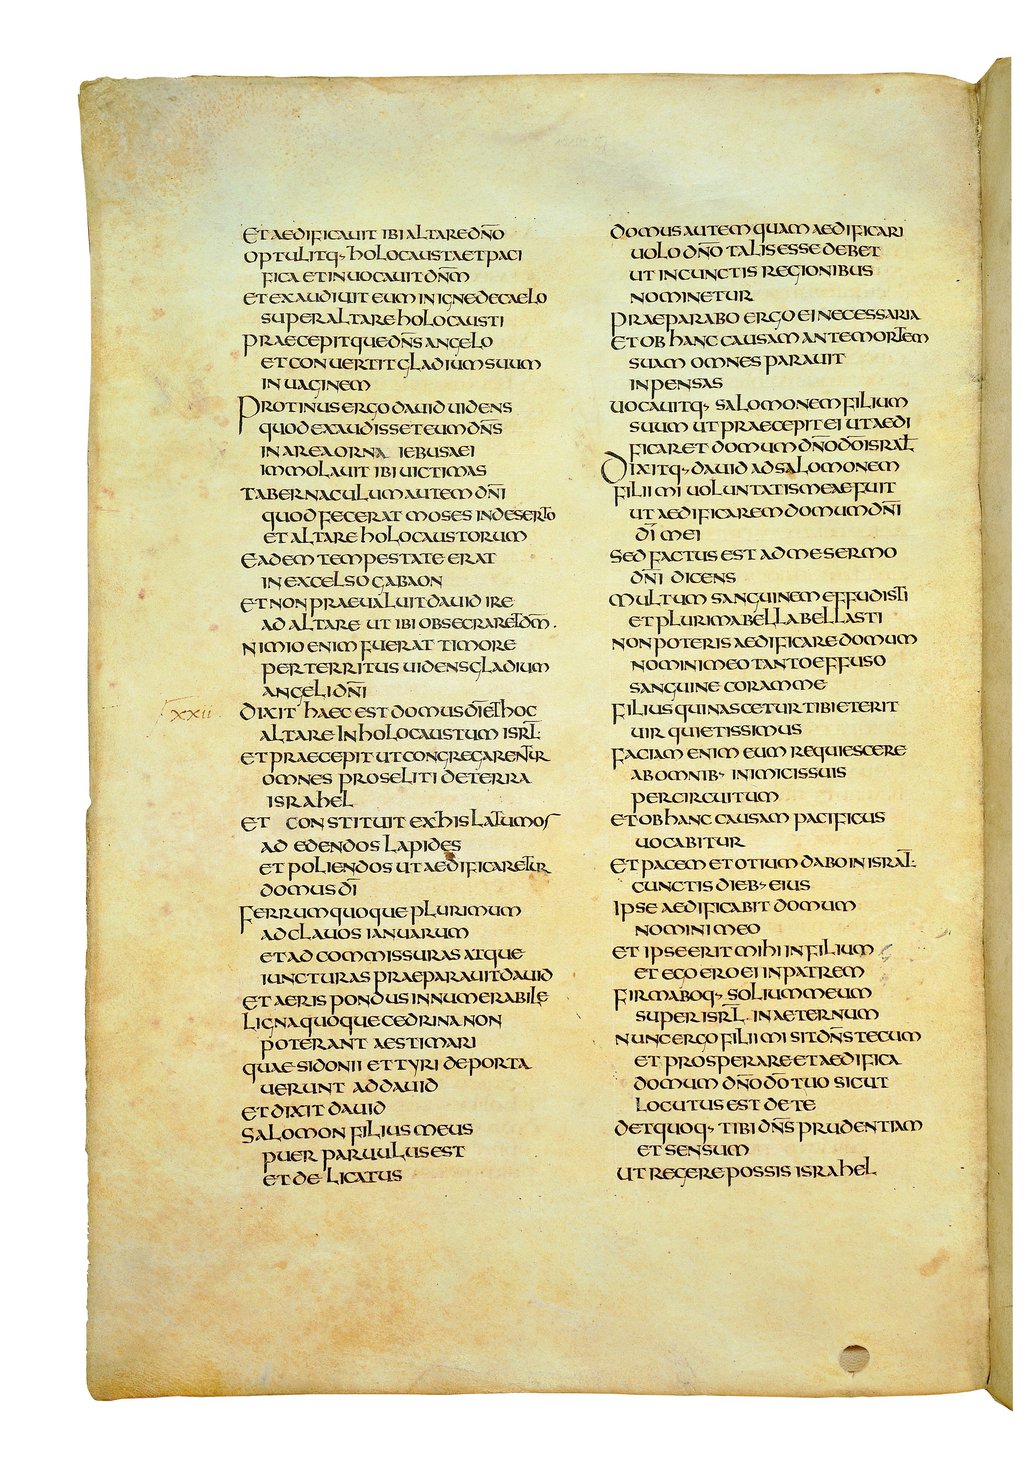 ET AEDIFICAUIT IBI ALTARE DÑO
OPTULITQ· HOLOCAUSTA ET PACI
FICA ET INUOCAUIT DÑM
ET EXAUDIUIT EUM IN IGNE DE CAELO
SUPER ALTARE HOLOCAUSTI
PRAECEPITQUE DÑS ANGELO
ET CONUERTIT GLADIUM SUUM
IN UAGINEM
PROTINUS ERGO DAUID UIDENS
QUOD EXAUDISSET EUM DÑS
IN AREA ORNA IEBUSAEI
IMMOLAUIT IBI UICTIMAS
TABERNACULUM AUTEM DÑI
QUOD FECERAT MOSES IN DESERTO
ET ALTARE HOLOCAUSTORUM
EADEM TEMPESTATE ERAT
IN EXCELSO GABAON
ET NON PRAEUALUIT DAUID IRE
AD ALTARE UT IBI OBSECRARET DM̄.
NIMIO ENIM FUERAT TIMORE
PERTERRITUS UIDENS GLADIUM
ANGELI DÑI
XXII
DIXIT HAEC EST DOMUS DĪ ET HOC
ALTARE IN HOLOCAUSTUM ISRL̄:
ET PRAECEPIT UT CONGREGARENTUR
OMNES PROSELITI DE TERRA
ISRAHEL
ET CONSTITUIT EX HIS LATUMOS
AD EDENDOS LAPIDES
ET POLIENDOS UT AEDIFICARETUR
DOMUS DĪ
FERRUM QUOQUE PLURIMUM
AD CLAUOS IANUARUM
ET AD COMMISSURAS ATQUE
IUNCTURAS PRAEPARAUIT DAUID
ET AERIS PONDUS INNUMERABILE
LIGNA QUOQUE CEDRINA NON
POTERANT AESTIMARI
QUAE SIDONII ET TYRI DEPORTA
UERUNT AD DAUID
ET DIXIT DAUID
SALOMON FILIUS MEUS
PUER PARUULUS EST
ET DELICATUS
DOMUS AUTEM QUAM AEDIFICARI
UOLO DÑO TALIS ESSE DEBET
UT IN CUNCTIS REGIONIBUS
NOMINETUR
PRAEPARABO ERGO EI NECESSARIA
ET OB HANC CAUSAM ANTE MORTEM
SUAM OMNES PARAUIT
INPENSAS
UOCAUITQ· SALOMONEM FILIUM
SUUM UT PRAECEPIT EI UT AEDI
FICARET DOMUM DÑO DŌ ISRAL̄
DIXITQ· DAUID AD SALOMONEM
FILII MI UOLUNTATIS MEAE FUIT
UT AEDIFICAREM DOMUM DÑI
DĪ MEI
SED FACTUS EST AD ME SERMO
DÑI DICENS
MULTUM SANGUINEM EFFUDISTI
ET PLURIMA BELLA BELLASTI
NON POTERIS AEDIFICARE DOMUM
NOMINI MEO TANTO EFFUSO
SANGUINE CORAM ME
FILIUS QUI NASCETUR TIBI ET ERIT
UIR QUIETISSIMUS
FACIAM ENIM EUM REQUIESCERE
AB OMNIB· INIMICIS SUIS
PER CIRCUITUM
ET OB HANC CAUSAM PACIFICUS
UOCABITUR
ET PACEM ET OTIUM DABO IN ISRAL̄:
CUNCTIS DIEB· EIUS
IPSE AEDIFICABIT DOMUM
NOMINI MEO
ET IPSE ERIT MIHI IN FILIUM
ET EGO ERO EI IN PATREM
FIRMABOQ· SOLIUM MEUM
SUPER ISRL̄. IN AETERNUM
NUNC ERGO FILII MI SIT DÑS TECUM
ET PROSPERARE ET AEDIFICA
DOMUM DÑO DŌ TUO SICUT
LOCUTUS EST DE TE
DET QUOQ· TIBI DÑS PRUDENTIAM
ET SENSUM
UT REGERE POSSIS ISRAHEL